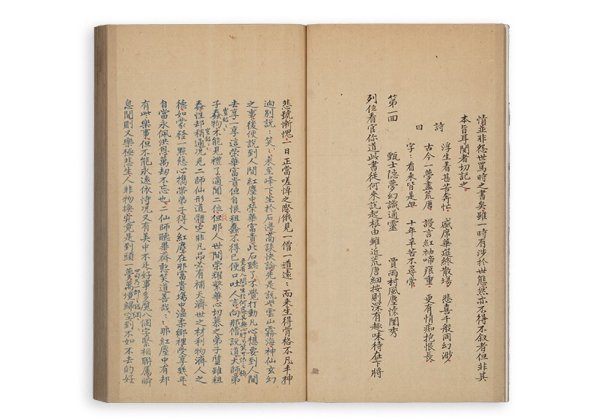 情並非怨世罵時之書矣雖一時有涉於世態然亦不得不叙者但非其
本旨耳閱者切記之
詩
曰
浮生着甚苦奔忙 盛席華筵終散場 悲喜千般同幻渺
古今一夢盡荒唐 謾言紅袖啼痕重 更有情痴抱恨長
字〻看來皆是血 十年辛苦不尋常
第一回
甄士隱夢幻識通靈 賈雨村風塵懷閨秀
列位看官你道此書從何來說起根由雖近荒唐細按則深有趣味待在下將
悲號慚愧一日正當嗟悼之際俄見一僧一道遠〻而來生得骨格不凡丰神
迥別說〻笑〻來至峰下坐於石邊高談快論先是說些雲山霧海神仙玄幻
之事後便說到人間紅塵中榮華富貴此石聽了不覺打動凡心想要到人間
去享一享這榮華富貴但自恨粗蠢不得已便口吐人言向那僧道說道大師弟
子蠢物不能見禮了適聞二位但那人世間榮耀繁華心切慕之弟子質雖粗
蠢性却稍通况見二師仙形道體定非凡品必有補天濟世之材利物濟人之
德如蒙發一點慈心携帶弟子得入紅塵在那富貴場中溫柔鄉裡受享幾年
自當永佩洪恩萬劫不忘也二仙師聽畢齊憨笑道善哉〻〻那紅塵中有却
有些樂事但不能永遠依恃况又有美中不足好事多魔八個字緊相聯屬瞬
息間則又樂極悲生人非物換究竟是到頭一夢萬境歸空到不如不去的好